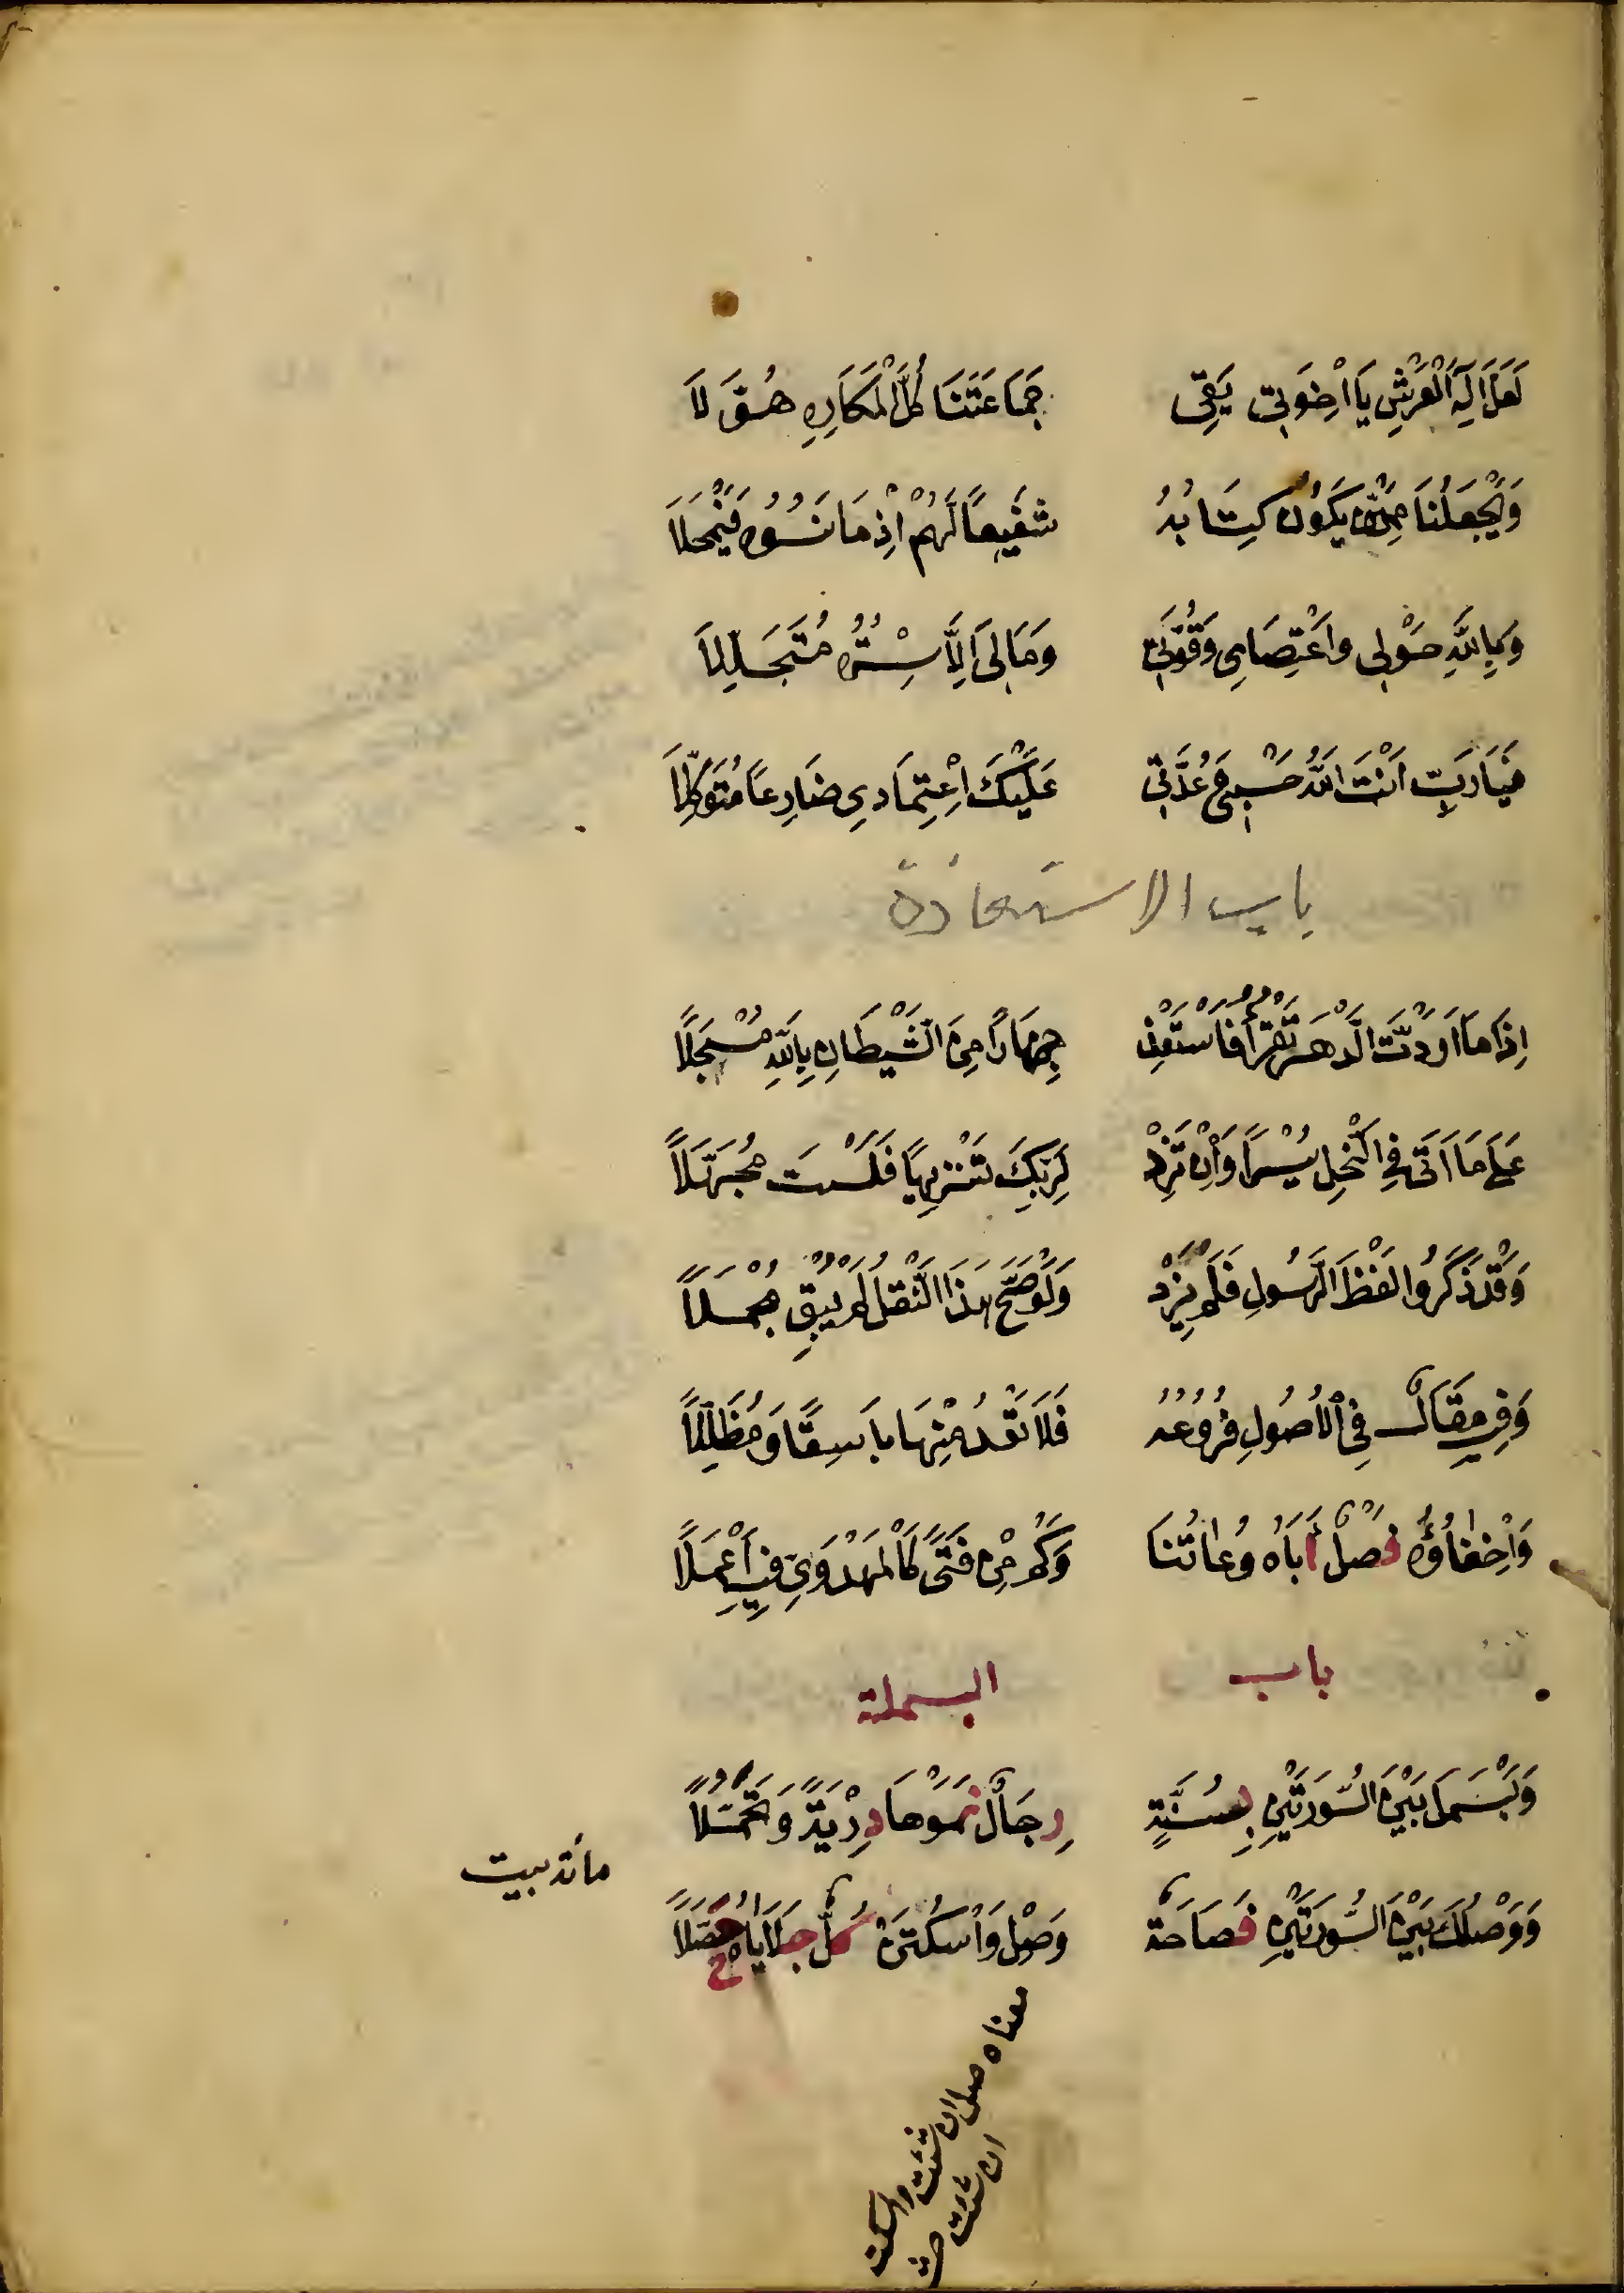 لَعَلَّ اِلَهَ الْعَرْشِ يَا اِخْوَتِى يَقِى جَمَاعَتَنَا كُلَّ الْمَكَارِهِ هُوَّلَا
وَيَجْعَلُنَا مِمَّنْ يَكُونُ كِتَابُهُ شَفِيعًا لَهُمْ اِذْ مَا نَسُوهُ فَيَمْحَلَا
وَبِاللَّهِ حَوْلِى وَاعْتِصَامِى وَقُوَّتِى وَمَا لِىَ اِلَّا سِتْرُهُ مُتَجَلِّلَا
فَيَارَبِّ اَنْتَ اللَّهُ حَسْبِى وَعُدَّتِى عَلَيْكَ اعْتِمَادِى ضَارِعًا مُتَوَكِّلَا
باب الاستعاذة
اِذَا مَا اَرَدْتَ الدَّهْرَ تَقْرَأُ فَاسْتَعِذْ جِهَارًا مِنَ الشَّيْطَانِ بِاللَّهِ مُسْجَلًا
عَلَى مَا اَتَى فِى النَّحْلِ يُسْرًا وَاِنْ تَزِدْ لِرَبِّكَ تَنْزِيهًا فَلَسْتَ مُجَهَّلًا
وَقَدْ ذَكَرُوا لَفْظَ الرَّسُولِ فَلَمْ يَزِدْ وَلَوْ صَحَّ هَذَا النَّقْلُ لَمْ يُبْقِ مُجْمَلًا
وَفِيهِ مَقَالٌ فِى الْاُصُولِ فُرُوعُهُ فَلَا تَعْدُ مِنْهَا بَاسِقًا وَمُظَلِّلًا
وَاِخْفَاؤُهُ فَصْلٌ أَبَاهُ وُعَاتُنَا وَكَمْ مِنْ فَتًى كَالْمَهْدَوِى فِيهِ أَعْمَلًا
باب البسملة
وَبَسْمَلَ بَيْنَ السُّورَتَيْنِ بِسُنَّةٍ رِجَالٌ نَمَوْهَا دِرْيَةً وَتَحَمُّلًا
مائة بيت
وَوَصْلُكَ بَيْنَ السُّورَتَيْنِ فَصَاحَةٌ وَصِلْ وَاسْكُتَنْ كُلٌّ جَلَايَاهُ حَصَّلًا
معناه صل ان شئت واسكت
ان شئت